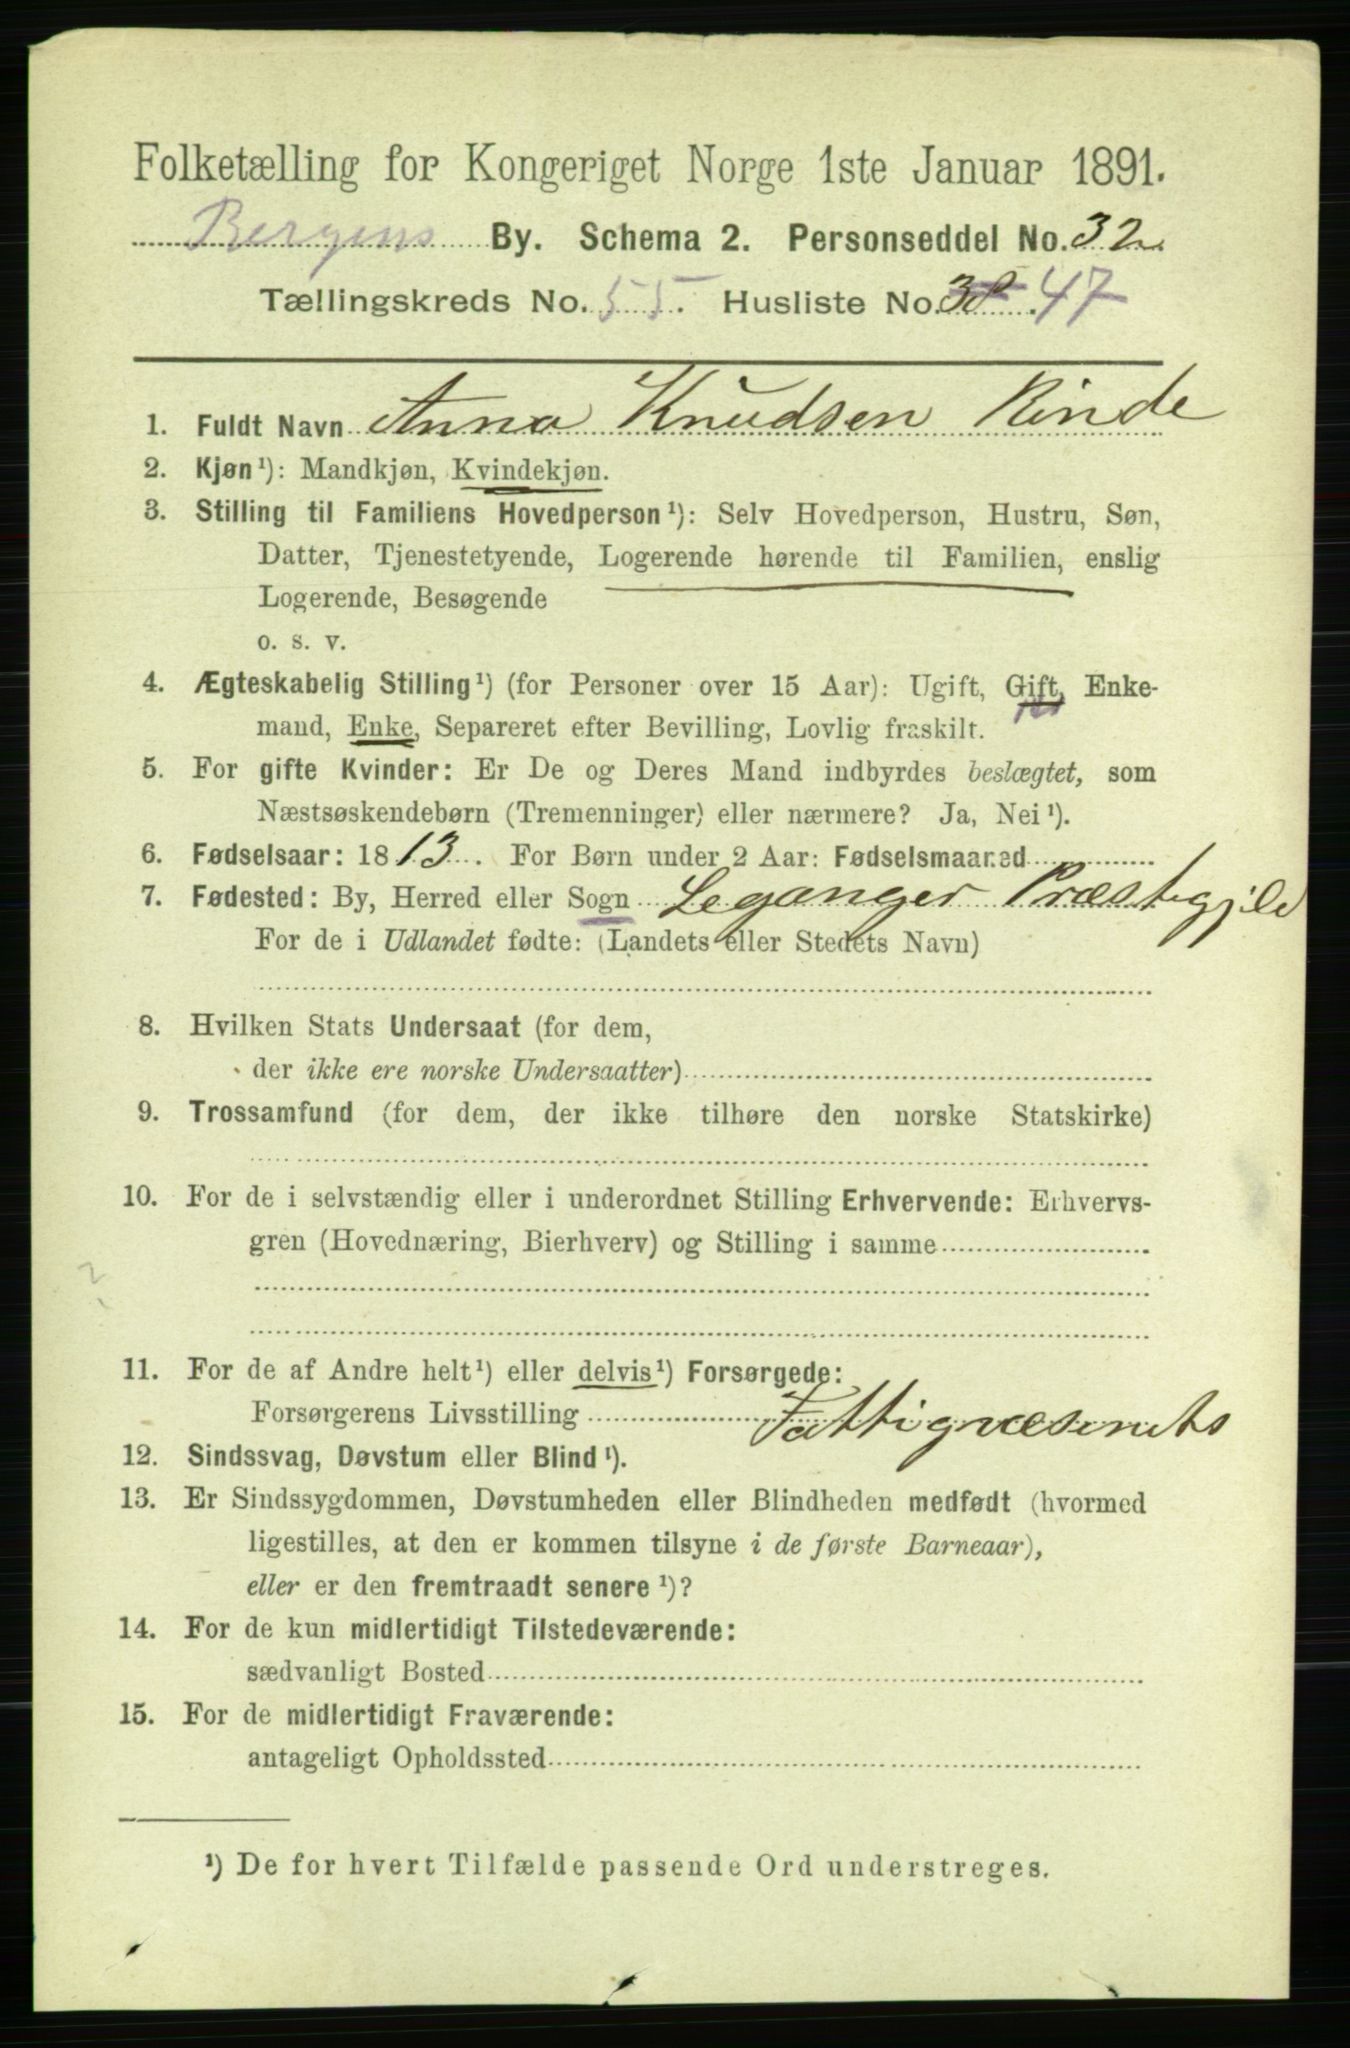 Folketælling for Kongeriget Norge 1ste Januar 1891.
Bergens By. Schema 2. Personseddel No. 32.
Tællingskreds No. 55. Husliste No. 38. 47
1. Fuldt Navn Anna Knudsen Rinde
2. Kjøn¹): Mandkjøn, Kvindekjøn.
3. Stilling til Familiens Hovedperson¹): Selv Hovedperson, Hustru, Søn,
Datter, Tjenestetyende, Logerende hørende til Familien, enslig
Logerende, Besøgende
o. s. v.
4. Ægteskabelig Stilling¹) (for Personer over 15 Aar): Ugift, Gift, Enke-
mand, Enke, Separeret efter Bevilling, Lovlig fraskilt.
5. For gifte Kvinder: Er De og Deres Mand indbyrdes beslægtet, som
Næstsøskendebørn (Tremenninger) eller nærmere? Ja, Nei¹).
6. Fødselsaar: 1813. For Børn under 2 Aar: Fødselsmaaned
7. Fødested: By, Herred eller Sogn Leganger Præstegjeld
For de i Udlandet fødte: (Landets eller Stedets Navn)
8. Hvilken Stats Undersaat (for dem,
der ikke ere norske Undersaatter)
9. Trossamfund (for dem, der ikke tilhøre den norske Statskirke)
10. For de i selvstændig eller i underordnet Stilling Erhvervende: Erhvervs-
gren (Hovednæring, Bierhverv) og Stilling i samme
?
11. For de af Andre helt¹) eller delvis¹) Forsørgede:
Forsørgerens Livsstilling Fattigvæsenets
12. Sindssvag, Døvstum eller Blind¹).
13. Er Sindssygdommen, Døvstumheden eller Blindheden medfødt (hvormed
ligestilles, at den er kommen tilsyne i de første Barneaar),
eller er den fremtraadt senere¹)?
14. For de kun midlertidigt Tilstedeværende:
sædvanligt Bosted
15. For de midlertidigt Fraværende:
antageligt Opholdssted
¹) De for hvert Tilfælde passende Ord understreges.